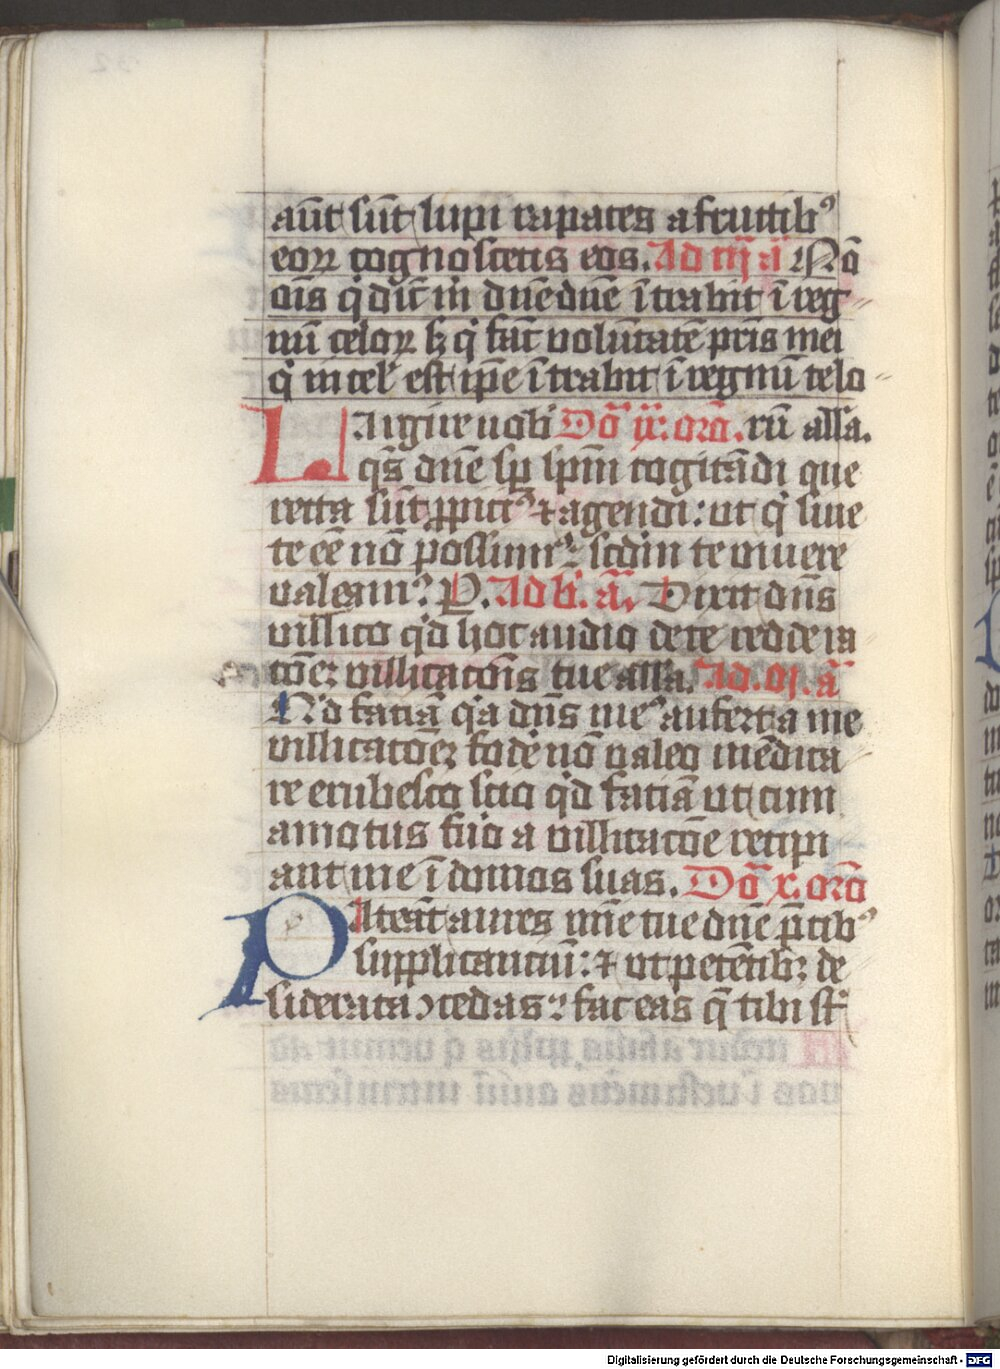 aūt sūt lupi rapaces a fructibꝰ
eoꝝ cognoscetis eos. Ad mḡ ā Nō
oīs q̇ dic̄ m̄ dn̄e dn̄e ītrabit ī reg
nū celoꝝ sꝫ q̇ fac̄ volūtatē pr̄is mei
q̇ in cel̄ est ip̄e ītrabit ī regnū celo
Largire nob̄ Dō ix. orō. rū alla.
qs̄ dn̄e sꝑ sp̄m cogitādi que
recta sūt ꝓpiciꝰ ⁊ agendi: ut q̇ sine
te eē nō possumꝰ: scdm te viuere
valeamꝰ? P. Ad b̄. ā. Dixit dn̄s
villico qd̄ hoc audio de te redde ra
coēꝫ villicacōnis tue alla. Ad. m̄. ā
Qͥd faciā qͥa dn̄s meꝰ aufert a me
villicatōeꝫ fodē nō valeo mēdica
re erubesco scio qd̄ faciā ut cum
amotus fūo a villicacōe recipi
ant me ī domos suas. Dō x. orō
Pateāt aures mīe tue dn̄e p̄cibꝰ
supplicanciū: ⁊ ut petētibꝫ de
siderata ↄcedas? fac eas q̄ tibi st̄
Digitalisierung gefördert durch die Deutsche Forschungsgemeinschaft - DFG